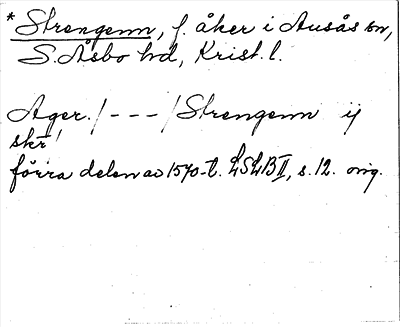 * Strengenn, f. åker i Ausås sn,
S. Åsbo hd, Krist. l.
Ager. / - - - / Strengenn ij
skr̄
förra delen av 1570-t. LSLB II, s. 12. orig.